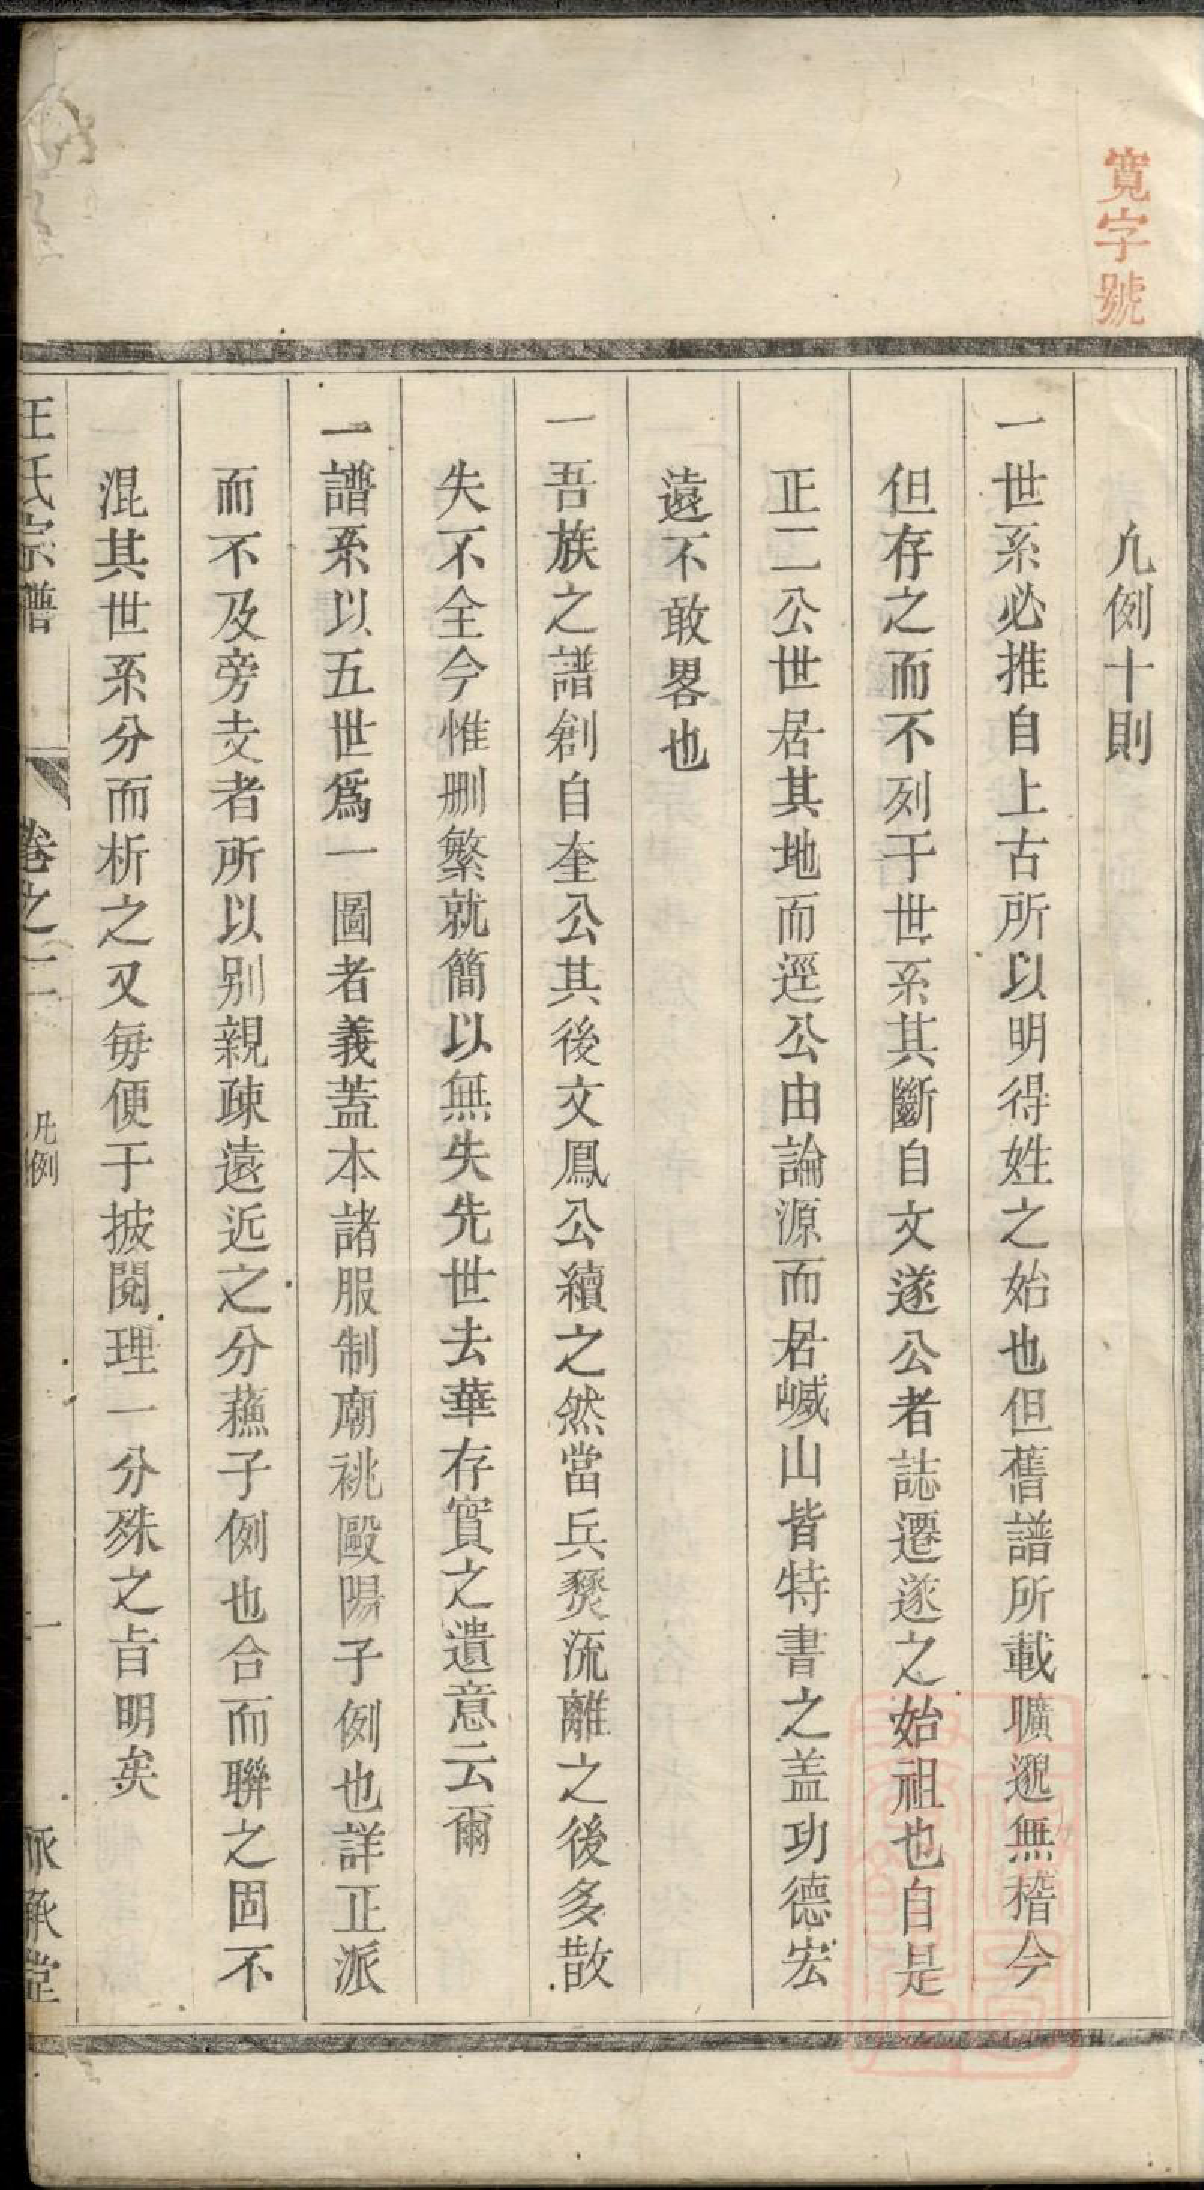 寛字號
凡例十則
一世系必推自上古所以明得姓之始也但舊譜所載曠邈無稽今
但存之而不列于世系其斷自文遂公者誌遷遂之始祖也自是
正二公世居其地而逕公由論源而居㟏山皆特書之盖功德宏
遠不敢畧也
一吾族之譜創自奎公其後文鳳公續之然當兵燹流離之後多散
失不全今惟刪繁就簡以無失先世去華存實之遺意云爾
一譜系以五世爲一圖者義蓋本諸服制廟祧毆陽子例也詳正派
而不及旁支者所以别親疎遠近之分蘓子例也合而聯之固不
混其世系分而析之又毎便于披閱理一分殊之㫖明矣
王氏宗譜
卷之一
凡例
一
承堂